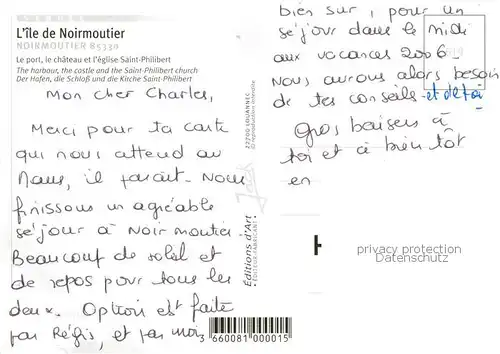 VENDÉE
L'île de Noirmoutier
NOIRMOUTIER 85330
Le port, le château et l'église Saint-Philibert
The harbour, the castle and the Saint-Philibert church
Der Hafen, die Schloß und die Kirche Saint-Philibert
Mon cher Charles,
Merci pour ta carte
qui nous attend au
Mans, il paraît. Nous
finissons un agréable
séjour à Noirmoutier.
Beaucoup de soleil et
de repos pour tous les
deux. Option est faite
par Régis, et par moi
bien sur, pour un
séjour dans le midi
aux vacances 2006.
Nous aurons alors besoin
de tes conseils et de toi
Gros baisers à
toi et à bien tôt
en
22700 LOUANNEC
© reproduction interdite
Jack
Editions d'Art
EDITEUR-FABRICANT
3 660081 000015
privacy protection
Datenschutz